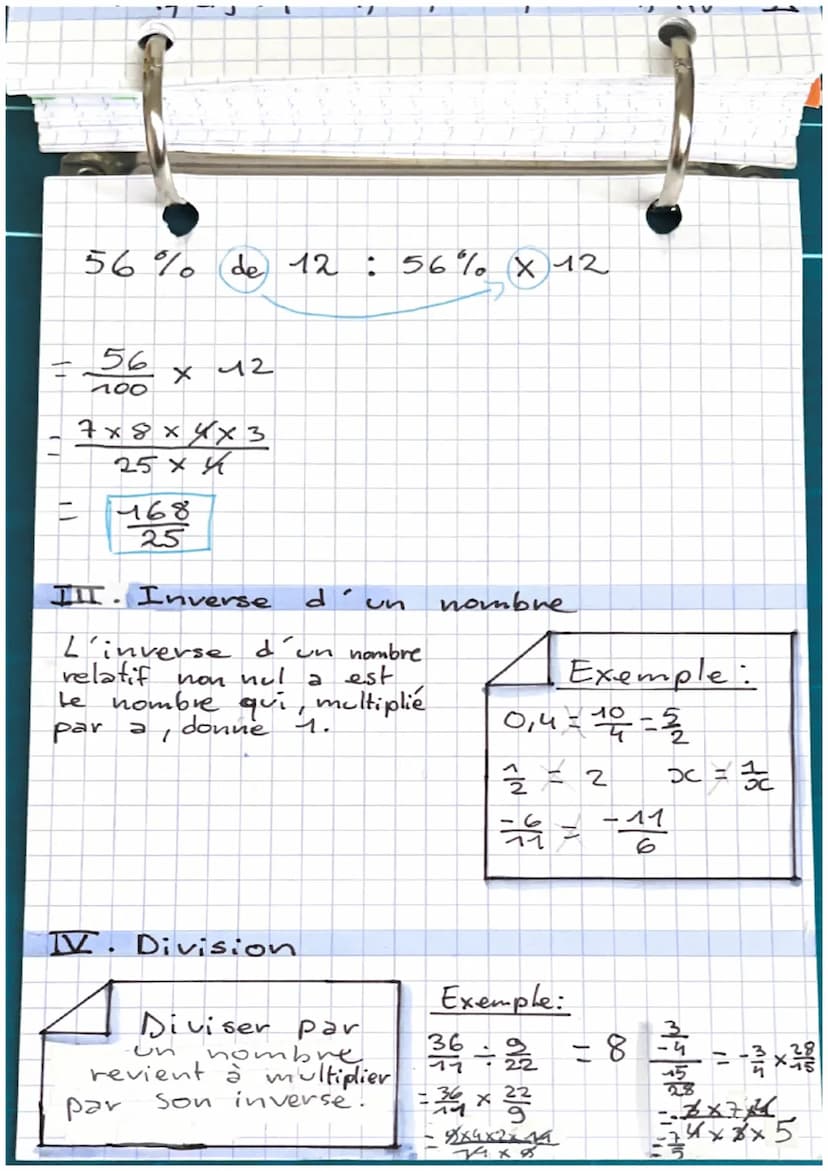 56 % de 12 : 56 % x 12
= 56/100 x 12
= 7 x 8 x 4 x 3 / 25 x 4
= 168/25
III. Inverse d'un nombre
L'inverse d'un nombre
relatif non nul a est
le nombre qui, multiplié
par a, donne 1.
Exemple :
0,4 = 10/4 = 5/2
1/2 = 2 x = 1/x
-6/11 = -11/6
IV. Division
Diviser par
un nombre
revient à multiplier
par son inverse.
Exemple:
36/11 ÷ 9/22 = 8
= 36/11 x 22/9
= 9x4x2x11 / 11 x 9
3/-4 / 15/28 = -3/4 x 28/15
= -3x7x4 / 4x3x5
= -7/5